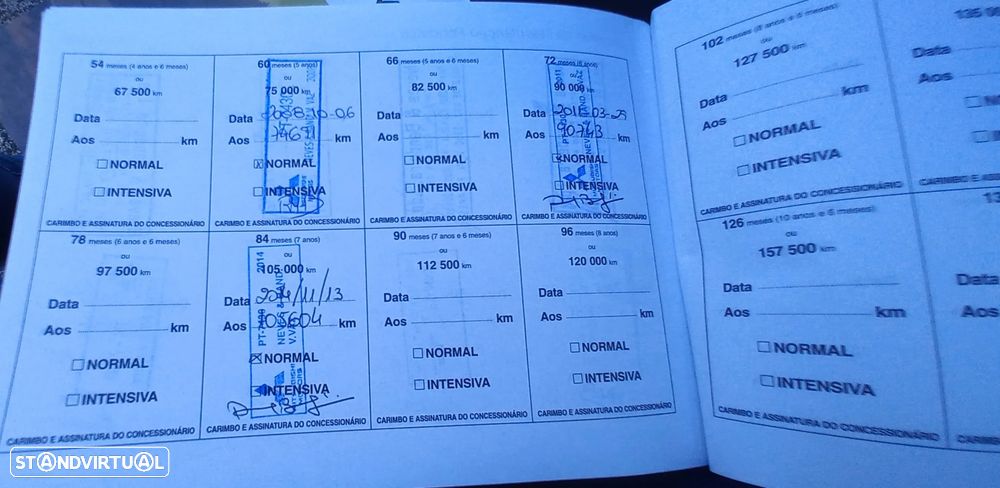 54 meses (4 anos e 6 meses)
ou
67 500 km
Data
Aos km
NORMAL
INTENSIVA
CARIMBO E ASSINATURA DO CONCESSIONÁRIO
60 meses (5 anos)
ou
75 000 km
Data 2008-10-06
Aos
NORMAL
INTENSIVA
CARIMBO E ASSINATURA DO CONCESSIONÁRIO
66 meses (5 anos e 6 meses)
ou
82 500 km
Data
Aos km
NORMAL
INTENSIVA
CARIMBO E ASSINATURA DO CONCESSIONÁRIO
72 meses (6 anos)
ou
90 000 km
Data 2011-03-25
Aos 90743 km
NORMAL
INTENSIVA
CARIMBO E ASSINATURA DO CONCESSIONÁRIO
78 meses (6 anos e 6 meses)
ou
97 500 km
Data
Aos km
NORMAL
INTENSIVA
CARIMBO E ASSINATURA DO CONCESSIONÁRIO
84 meses (7 anos)
2014
105 000 km
Data 2014/11/13
Aos 105604 km
NORMAL
INTENSIVA
CARIMBO E ASSINATURA DO CONCESSIONÁRIO
90 meses (7 anos e 6 meses)
ou
112 500 km
Data
Aos km
NORMAL
INTENSIVA
CARIMBO E ASSINATURA DO CONCESSIONÁRIO
96 meses (8 anos)
ou
120 000 km
Data
Aos km
NORMAL
INTENSIVA
CARIMBO E ASSINATURA DO CONCESSIONÁRIO
102 meses (8 anos e 6 meses)
ou
127 500 km
Data
Aos km
NORMAL
INTENSIVA
CARIMBO E ASSINATURA DO CONCESSIONÁRIO
135 00
Data
Aos
CARIMBO E
126 meses (10 anos e 6 meses)
ou
157 500 km
Data
Aos km
NORMAL
INTENSIVA
CARIMBO E ASSINATURA DO CONCESSIONÁRIO
Data
Aos
STANDVIRTUAL